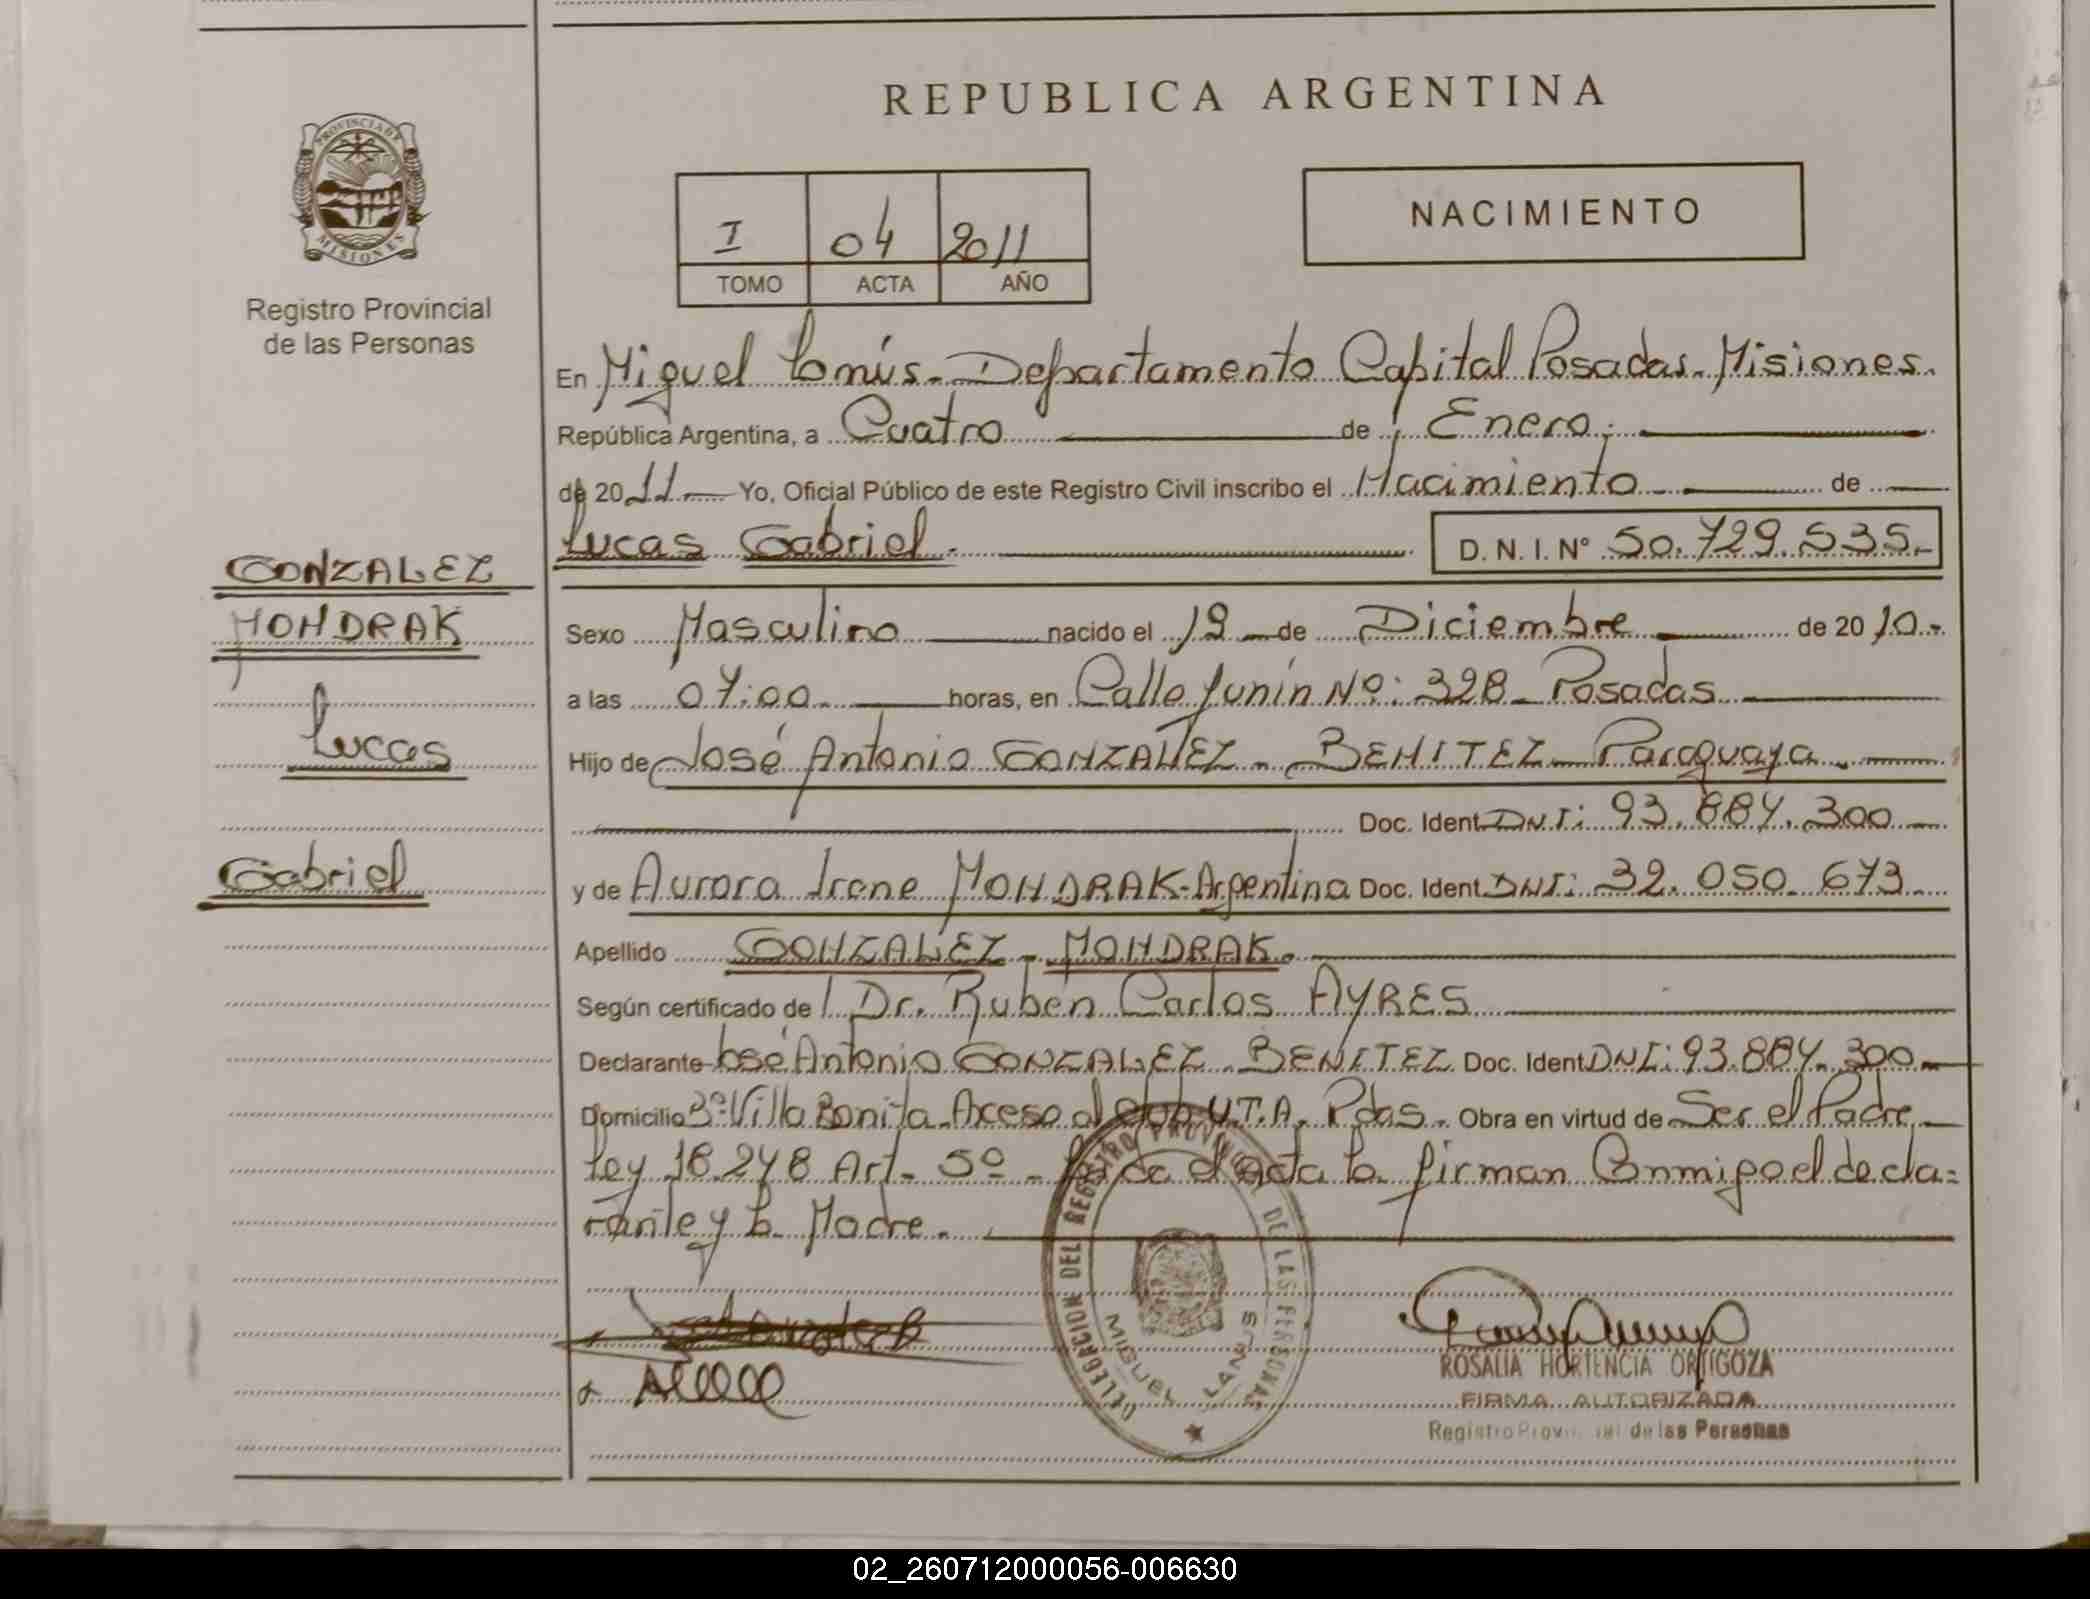 REPUBLICA ARGENTINA
PROVINCIA DE MISIONES
Registro Provincial
de las Personas
I 04 2011
TOMO ACTA AÑO
NACIMIENTO
En Miguel Lanús - Departamento Capital Posadas - Misiones.
República Argentina, a Cuatro de Enero.
de 2011 Yo, Oficial Público de este Registro Civil inscribo el Nacimiento de
Lucas Gabriel. D. N. I. Nº 50.729.535.-
GONZALEZ
MONDRAK
Lucas
Gabriel
Sexo Masculino nacido el 19 de Diciembre de 2010.-
a las 07:00 horas, en Calle Junín Nº: 328 - Posadas
Hijo de José Antonio GONZALEZ - BENITEZ - Paraguaya.
Doc. Ident. DNI: 93.884.300
y de Aurora Irene MONDRAK - Argentina Doc. Ident. DNI: 32.050.673
Apellido GONZALEZ - MONDRAK.
Según certificado de Dr. Ruben Carlos AYRES
Declarante José Antonio GONZALEZ - BENITEZ Doc. Ident. DNI: 93.884.300
Domicilio Bº Villa Bonita - Acceso al Club U.T.A. Pdas. Obra en virtud de Ser el Padre
Ley 18.248 Art. 5º - el acta la firman Conmigo el decla=
rante y la Madre.
DELEGACION DEL REGISTRO PROVINCIAL DE LAS PERSONAS
MIGUEL LANUS
ROSALIA HORTENCIA ORTIGOZA
FIRMA AUTORIZADA
Registro Provincial de las Personas
02_260712000056-006630